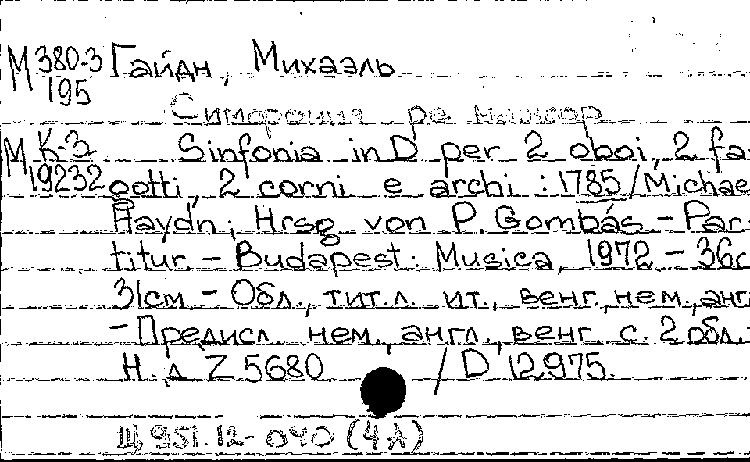 М 380-3 Гайдн, Михаэль
195
Симфония ре мажор
М К-3 Sinfonia in D per 2 oboi, 2 fa-
19232 gotti, 2 corni e archi : 1785 / Michae
Haydn; Hrsg. von P. Gombás. – Par-
titur. – Budapest: Musica, 1972 – 36с
31см – Обл., тит.л. ит., венг., нем., анг
– Предисл. нем., англ., венг. с. 2 обл.
Н. д. Z 5680 / D 12975.
Щ 951.12-040 (4А)